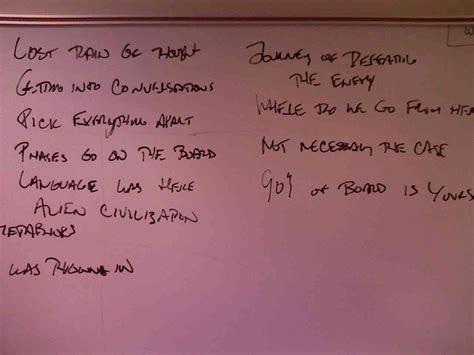 LOST TRAIN OF THOUGHT
GETTING INTO CONVERSATIONS
PICK EVERYTHING APART
PHASES GO ON THE BOARD
LANGUAGE WAS HERE
ALIEN CIVILIZATION
WAS THROWN IN
JOURNEY OF DEFEATING
THE ENEMY
WHERE DO WE GO FROM HERE
NOT NECESSARILY THE CASE
90% OF BOARD IS YOURS